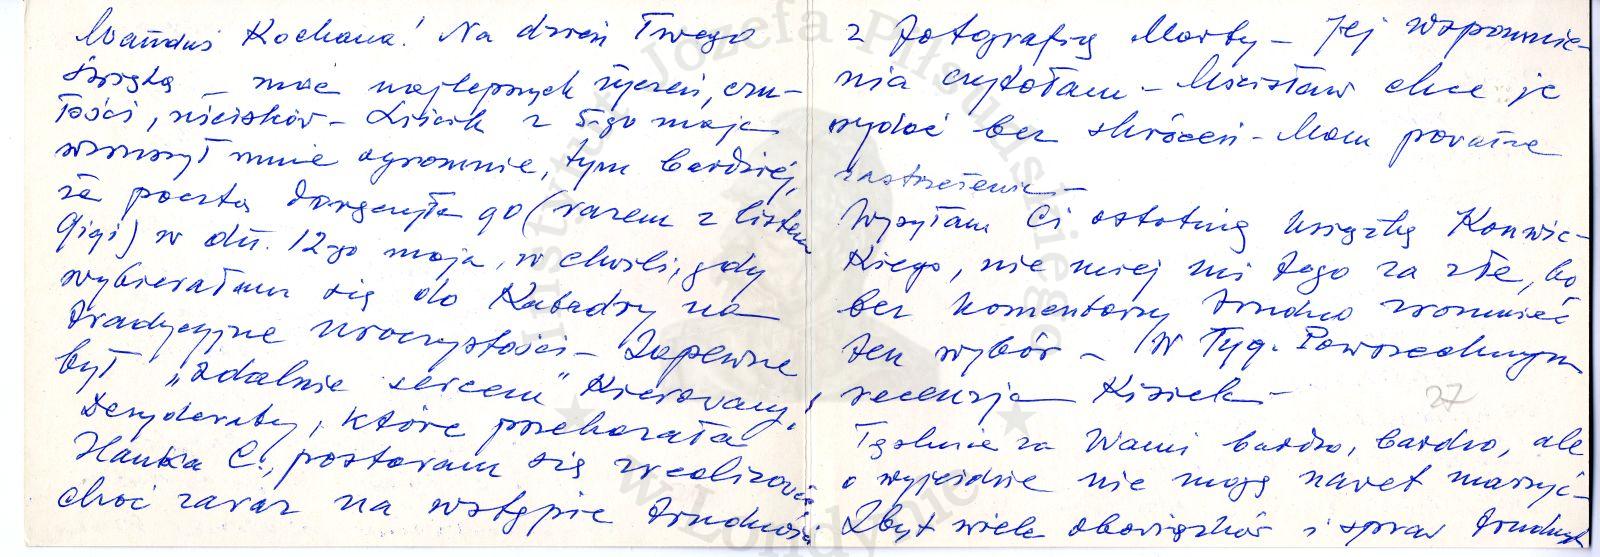 Wandziu Kochana! Na dzień Twego
święta – moc najlepszych życzeń, czu-
łości, uścisków – Liścik z 5-go maja
wzruszył mnie ogromnie, tym bardziej,
że poczta doręczyła go (razem z listem
Gigi) w dn. 12-go maja, w chwili, gdy
wybierałam się do Katedry na
tradycyjne uroczystości – Zapewne
był „zdalnie sercem" kierowany!
Dezyderaty, które przekazała
Hanka C., postaram się zrealizować
choć zaraz na wstępie trudności
z fotografią Marty – Jej wspomnie-
nia czytałam – Mścisław chce je
wydać bez skróceń – Mam poważne
zastrzeżenia –
Wysyłam Ci ostatnią książkę Konwic-
kiego, nie miej mi tego za złe, bo
bez komentarzy trudno zrozumieć
ten wybór – W Tyg. Powszechnym
recenzja Kisiela –
Tęsknię za Wami bardzo, bardzo, ale
o wyjeździe nie mogę nawet marzyć –
Zbyt wiele obowiązków i spraw trudnych
27
Instytut Józefa Piłsudskiego
w Londynie